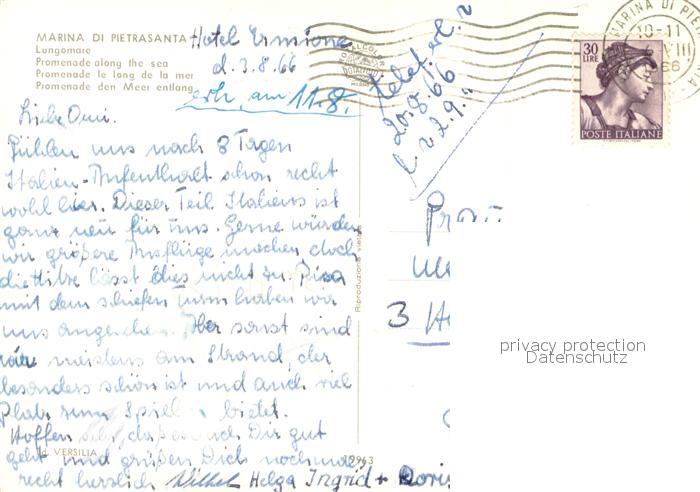 MARINA DI PIETRASANTA
Lungomare
Promenade along the sea
Promenade le long de la mer
Promenade den Meer entlang
Hotel Ermione
d. 3.8.66
erh. am 11.8.
Liebe Omi.
Fühlen uns nach 3 Tagen
Italien-Aufenthalt schon recht
wohl hier. Dieser Teil Italiens ist
ganz neu für uns. Gerne würden
wir größere Ausflüge machen doch
die Hitze lässt dies nicht zu. Pisa
mit dem schiefen Turm haben wir
uns angesehen. Aber sonst sind
wir meistens am Strand, der
besonders schön ist und auch viel
Platz zum Spiel bietet.
Hoffen sehr, dass es auch Dir gut
geht und grüßen Dich nochmals
recht herzlich Wilhelm Helga Ingrid + Doris
VERSILIA
Riproduzione vietata
20.8.66
MARINA DI PIE
10-11
VIII
66
30
LIRE
POSTE ITALIANE
3
privacy protection
Datenschutz